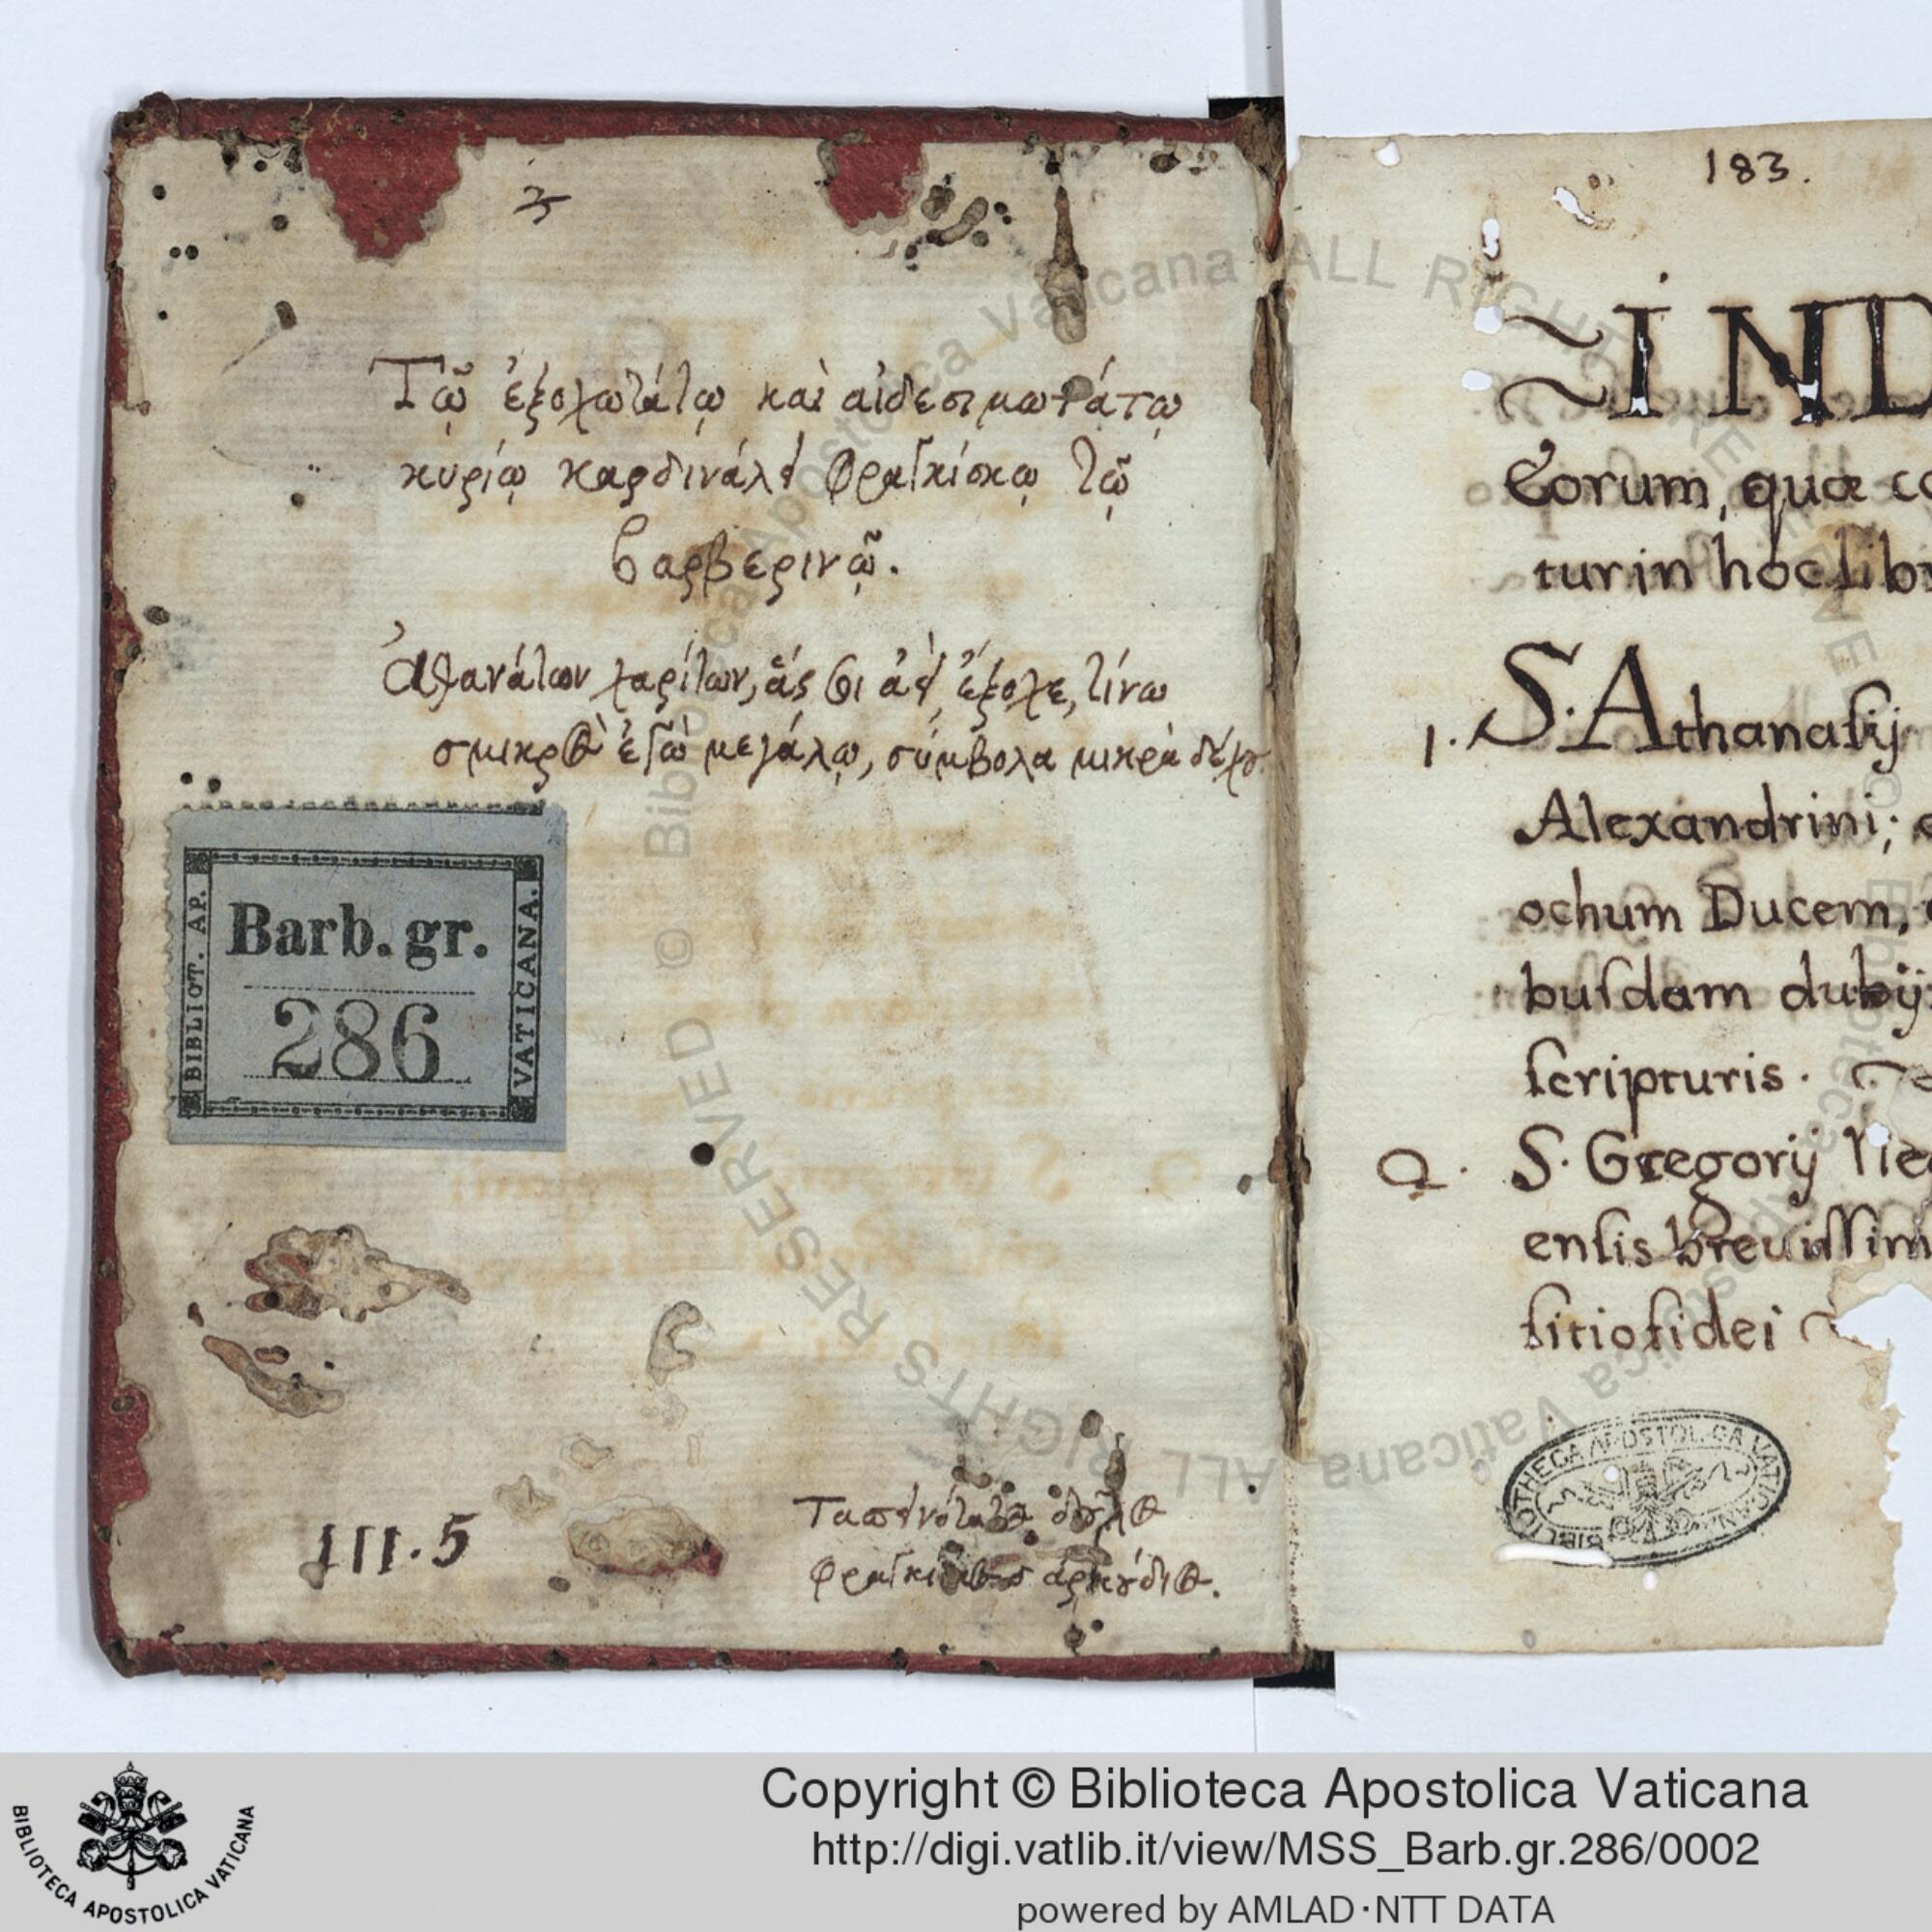 Τῷ ἐξοχωτάτῳ καὶ αἰδεσιμωτάτῳ
κυρίῳ καρδινάλει Φραγκίσκῳ τῷ
βαρβερινῷ.
Ἀθανάτων χαρίτων, ἅς σοι ἀεί, ἔξοχε, τίνω
σμικρὸς ἐγὼ μεγάλῳ, σύμβολα μικρὰ δέχου
BIBLIOT. AP. VATICANA.
Barb. gr.
286
III.5
Ταπεινότατος δοῦλος
Φραγκίσκος ἀρκούδιος.
183.
IND
Eorum, quæ co
tur in hoc libr
1. S. Athanasij
Alexandrini;
ochum Ducem,
busdam dubij
scripturis.
2. S. Gregorij
ensis breuissim
sitio fidei
BIBLIOTHECA APOSTOLICA VATICANA
© Biblioteca Apostolica Vaticana ALL RIGHTS RESERVED
BIBLIOTECA APOSTOLICA VATICANA
Copyright © Biblioteca Apostolica Vaticana
http://digi.vatlib.it/view/MSS_Barb.gr.286/0002
powered by AMLAD·NTT DATA